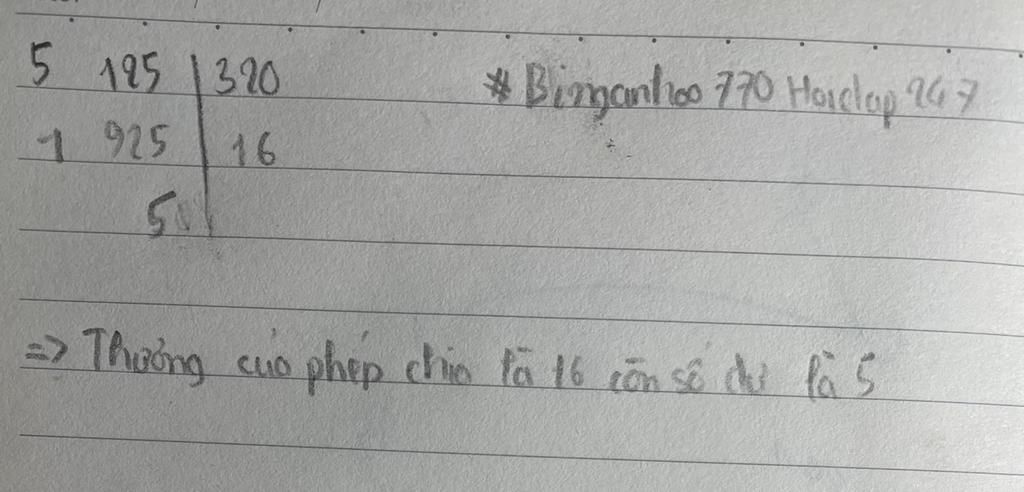 5 125 | 320 * Binganhoo 770 Hoidap 247
1 925 | 16
5
=> Thương của phép chia là 16 còn số dư là 5